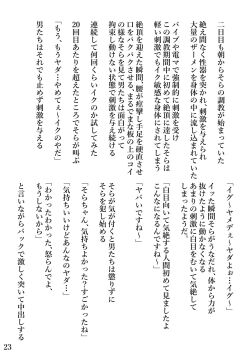 二日目も朝からそらの調教が始まっていた
絶え間なく性器を突かれ、刺激を与えられ
大量のザーメンを身体の中に流し込まれていた
バイブや電マで強制的に刺激を受け
この調教期間中に初めて絶頂に達したそらは
軽い刺激でもイク敏感な身体にされてしまう
絶頂を迎えた瞬間、腰が痙攣し足を硬直させ
口をパクパクさせる、まるでまな板の上のコイ
の様なそらを見て男たちは面白がって
拘束し動けない状態で刺激を与え続ける
連続して何回くらいイクのか試してみた
20回目あたりを超えたところでそらが嫌がる
「もう、もうヤダ…やめてぇ〜イクのやだ」
男たちはそれでも止めず刺激を与える
「イグ〜ヤメデぇ〜ヤダよぉ…イグ〜」
イッた瞬間そらがうなだれ、体から力が
抜けたように動かなくなった
あまりの刺激に白目をむいて気絶して
しまったようだ。
「白目向いて気絶する人間初めて見ましたよ
こんなになるんですね〜」
「ヤバいですね〜」
そらが気が付くと男たちは懲りずに
そらを犯し始める
「そらちゃん、気持ちよかった?すごかったね」
「気持ちいいけどあんなのヤダ…」
「わかったわかった、怒らんでよ、
もうしないから」
と言いながらバックで激しく突いて中出しする
23